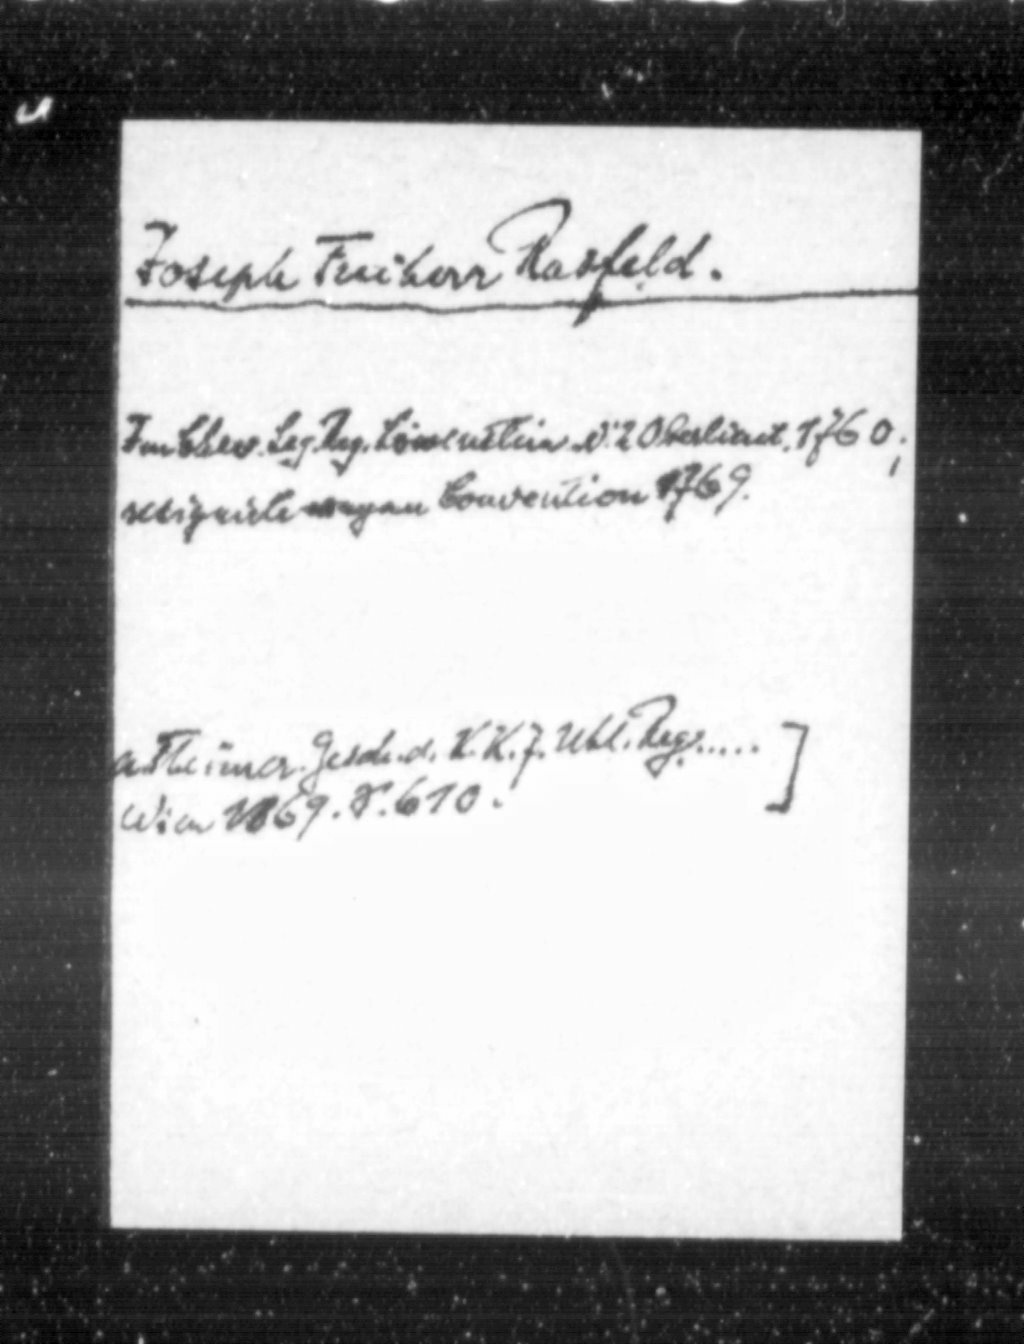 Joseph Freiherr Rasfeld.
Im Chev. Leg. Reg. Löwenstein N: 2 Oberlieut. 1760;
resignirte wegen Convention 1769.
a. Theimer. Gesch. d. K. K. 7. Uhl. Reg. .....]
Wien 1869. S. 610.